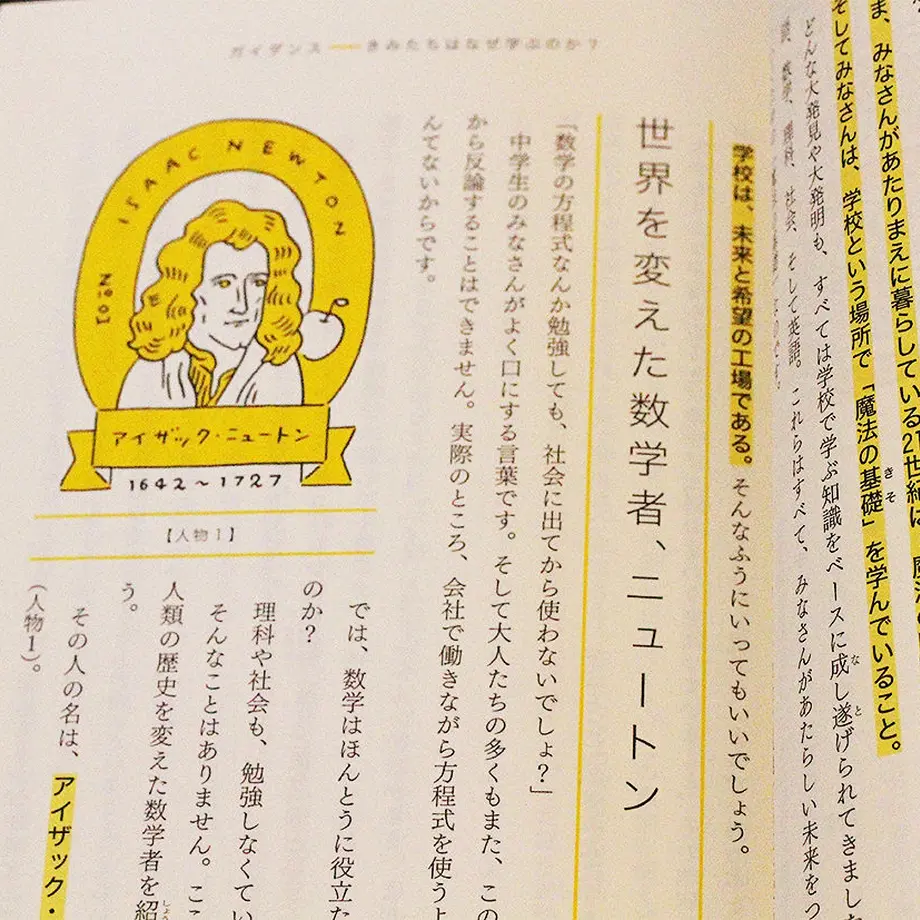 ま、みなさんがあたりまえに暮らしている21世紀は、魔
そしてみなさんは、学校という場所で「魔法の基礎」を学んでいること。
きそ
どんな大発見や大発明も、すべては学校で学ぶ知識をベースに成し遂げられてきまし
な
と
社会、そして英語。これらはすべて、みなさんがあたらしい未来をつ
学校は、未来と希望の工場である。そんなふうにいってもいいでしょう。
世界を変えた数学者、ニュートン
「数学の方程式なんか勉強しても、社会に出てから使わないでしょ？」
中学生のみなさんがよく口にする言葉です。そして大人たちの多くもまた、この
から反論することはできません。実際のところ、会社で働きながら方程式を使うよ
んてないからです。
ガイダンス きみたちはなぜ学ぶのか？
No.01 ISAAC NEWTON
アイザック・ニュートン
1642～1727
【人物1】
では、数学はほんとうに役立た
のか？
理科や社会も、勉強しなくてい
そんなことはありません。ここ
人類の歴史を変えた数学者を紹
しょう
う。
その人の名は、アイザック・
（人物1）。